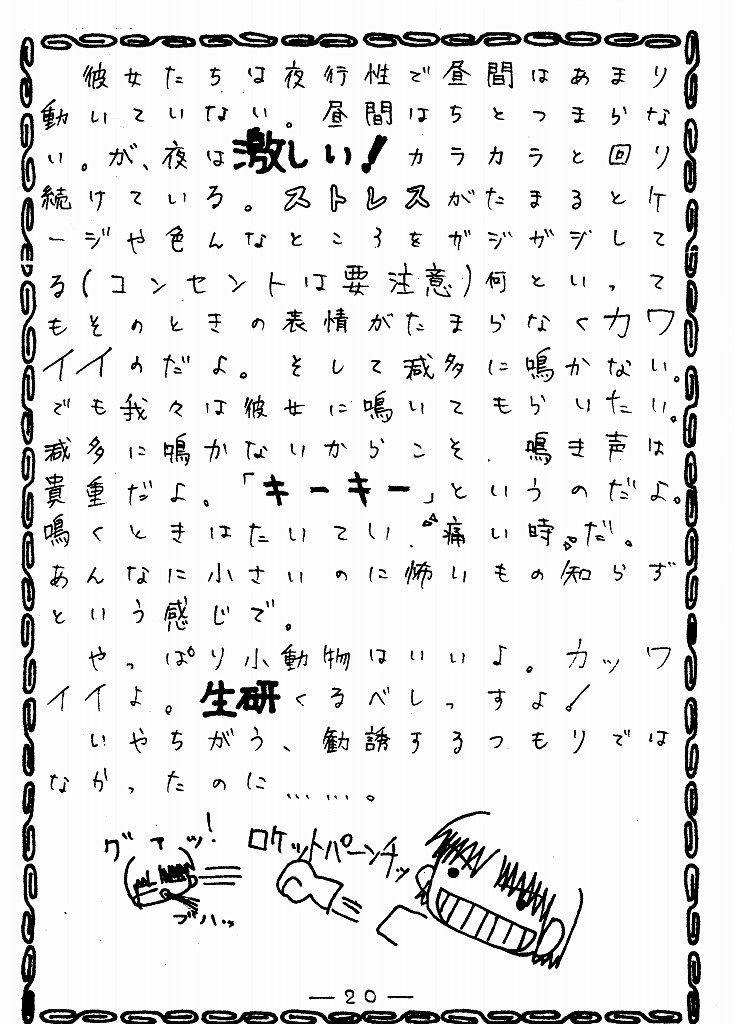 彼女たちは夜行性で昼間はあまり
動いていない。昼間はちとつまらな
い。が、夜は激しい！カラカラと回り
続けている。ストレスがたまるとケ
ージや色んなところをガジガジして
る(コンセントは要注意)何といって
もそのときの表情がたまらなくカワ
イイのだよ。そして滅多に鳴かない。
でも我々は彼女に鳴いてもらいたい。
滅多に鳴かないからこそ、鳴き声は
貴重だよ。「キーキー」というのだよ。
鳴くときはたいてい、〝痛い時〟だ。
あんなに小さいのに怖いもの知らず
という感じで。
やっぱり小動物はいいよ。カッワ
イイよ。生研くるべしっすよ！
いやちがう、勧誘するつもりでは
なかったのに……。
グァッ！
ロケットパーンチッ
ブハッ
— 20 —